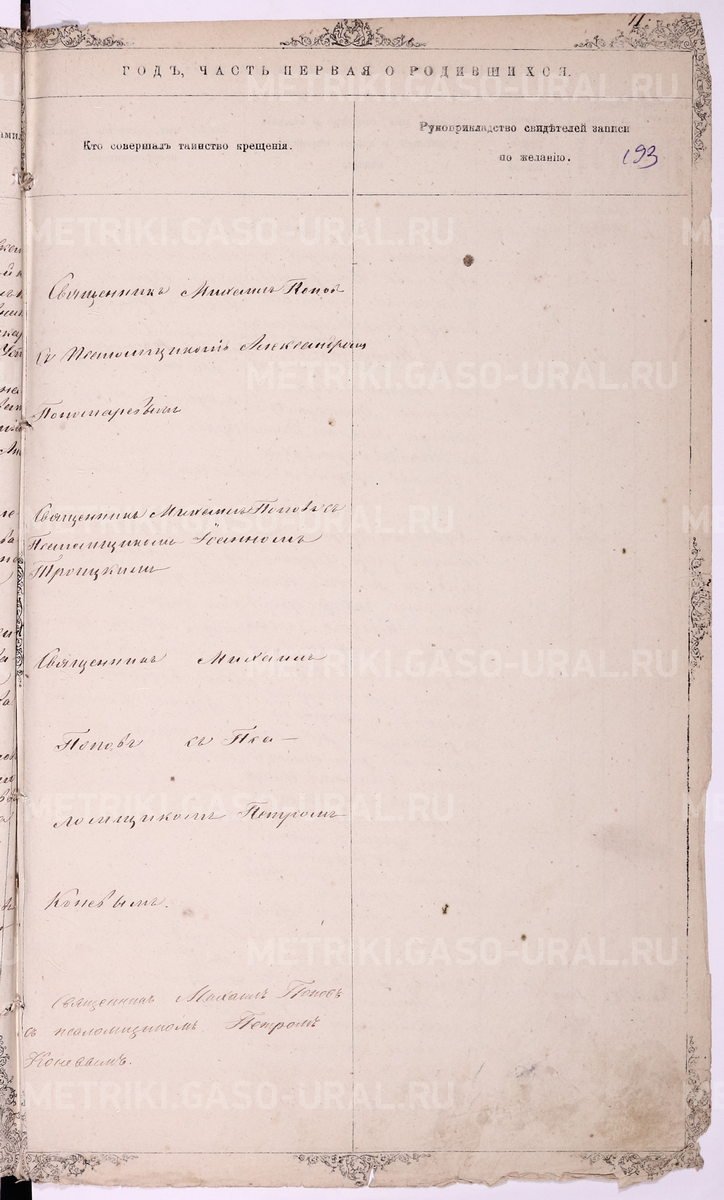 11.
ГОДЪ, ЧАСТЬ ПЕРВАЯ О РОДИВШИХСЯ.
Кто совершалъ таинство крещенія.
Рукоприкладство свидѣтелей записи
по желанію.
193
Священникъ Михаилъ Попов
съ Псаломщикомъ Александромъ
Пономаревымъ
Священникъ Михаилъ Поповъ съ
Псаломщикомъ Іоанномъ
Троицкимъ
Священникъ Михаилъ
Поповъ съ Пса-
ломщикомъ Петромъ
Коневымъ.
Священникъ Михаилъ Поповъ
съ псаломщикомъ Петромъ
Коневымъ.
METRIKI.GASO-URAL.RU